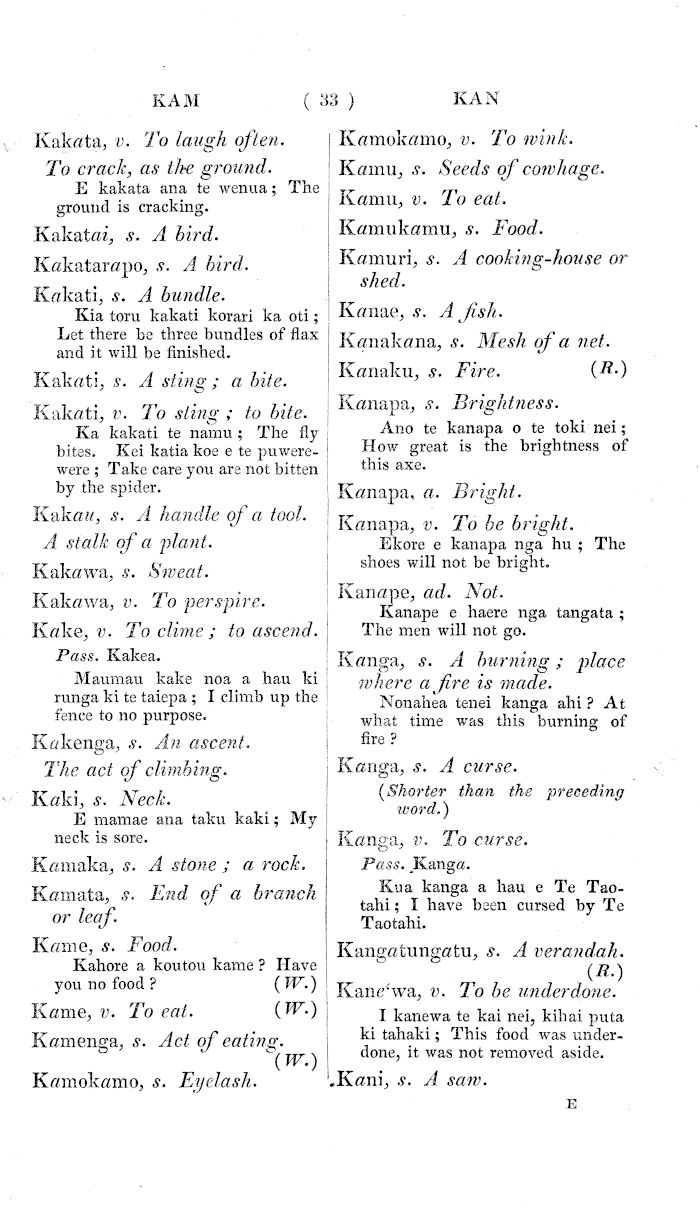 KAM ( 33 ) KAN
Kakata, v. To laugh often.
To crack, as the ground.
E kakata ana te wenua; The
ground is cracking.
Kakatai, s. A bird.
Kakatarapo, s. A bird.
Kakati, s. A bundle.
Kia toru kakati korari ka oti;
Let there be three bundles of flax
and it will be finished.
Kakati, s. A sting; a bite.
Kakati, v. To sting; to bite.
Ka kakati te namu; The fly
bites. Kei katia koe e te puwere-
were; Take care you are not bitten
by the spider.
Kakau, s. A handle of a tool.
A stalk of a plant.
Kakawa, s. Sweat.
Kakawa, v. To perspire.
Kake, v. To clime; to ascend.
Pass. Kakea.
Maumau kake noa a hau ki
runga ki te taiepa; I climb up the
fence to no purpose.
Kakenga, s. An ascent.
The act of climbing.
Kaki, s. Neck.
E mamae ana taku kaki; My
neck is sore.
Kamaka, s. A stone; a rock.
Kamata, s. End of a branch
or leaf.
Kame, s. Food.
Kahore a koutou kame? Have
you no food? (W.)
Kame, v. To eat. (W.)
Kamenga, s. Act of eating.
(W.)
Kamokamo, s. Eyelash.
Kamokamo, v. To wink.
Kamu, s. Seeds of cowhage.
Kamu, v. To eat.
Kamukamu, s. Food.
Kamuri, s. A cooking-house or
shed.
Kanae, s. A fish.
Kanakana, s. Mesh of a net.
Kanaku, s. Fire. (R.)
Kanapa, s. Brightness.
Ano te kanapa o te toki nei;
How great is the brightness of
this axe.
Kanapa, a. Bright.
Kanapa, v. To be bright.
Ekore e kanapa nga hu; The
shoes will not be bright.
Kanape, ad. Not.
Kanape e haere nga tangata;
The men will not go.
Kanga, s. A burning; place
where a fire is made.
Nonahea tenei kanga ahi? At
what time was this burning of
fire?
Kanga, s. A curse.
(Shorter than the preceding
word.)
Kanga, v. To curse.
Pass. Kanga.
Kua kanga a hau e Te Tao-
tahi; I have been cursed by Te
Taotahi.
Kangatungatu, s. A verandah.
(R.)
Kane‘wa, v. To be underdone.
I kanewa te kai nei, kihai puta
ki tahaki; This food was under-
done, it was not removed aside.
Kani, s. A saw.
E